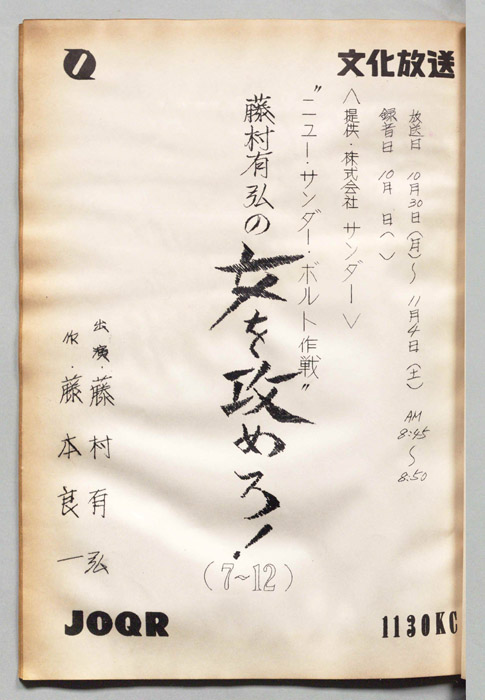 文化放送
放送日 10月30日(月)〜11月4日(土) AM 8:45〜8:50
録音日 10月 日( )
〈提供・株式会社 サンダー〉
"ニュー・サンダー・ボルト作戦"
藤村有弘の
女を攻めろ!
(7~12)
出演・藤村有弘
作・藤本良一
JOQR
1130KC